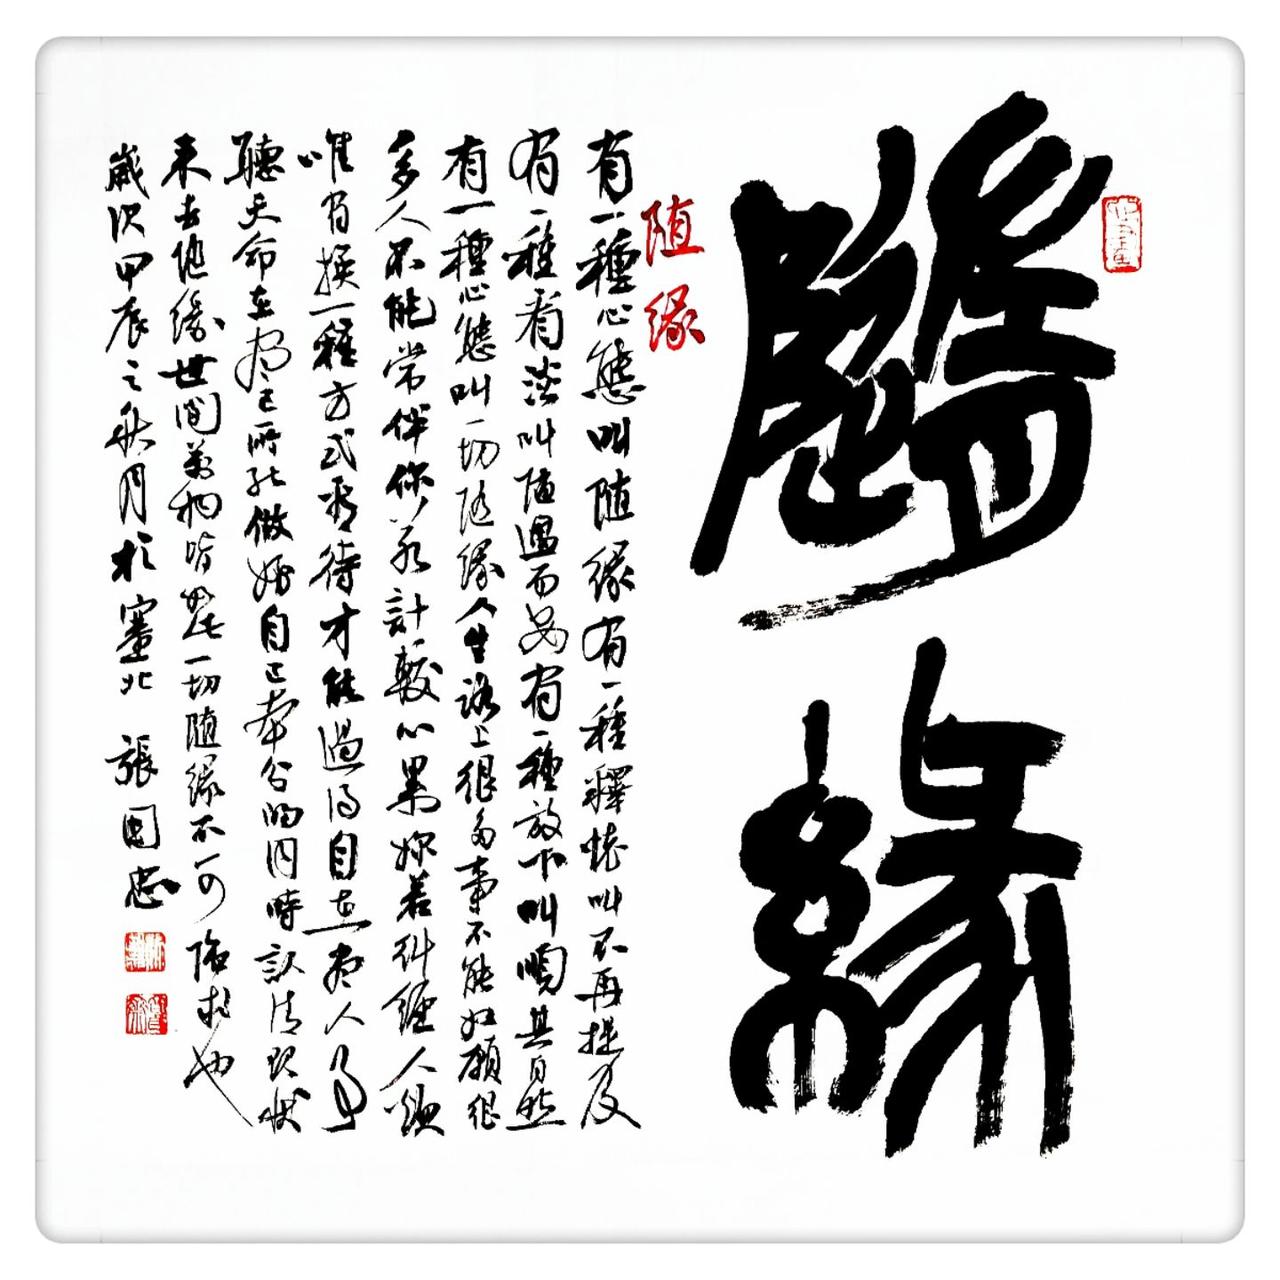 隨緣
随缘
有一種心態叫随缘有一種釋懷叫不再提及
有一種看淡叫随遇而安有一種放下叫順其自然
有一種心態叫一切随缘人生路上很多事不能如願很
多人不能常伴你若計較心累你若糾纏人煩
唯有換一種方式看待才能過得自在盡人事
聽天命在尽己所能做好自己本分的同時認清現狀
来去他缘世間萬物皆是一切随缘不可強求也
歲次甲辰之秋月於塞北 張國忠